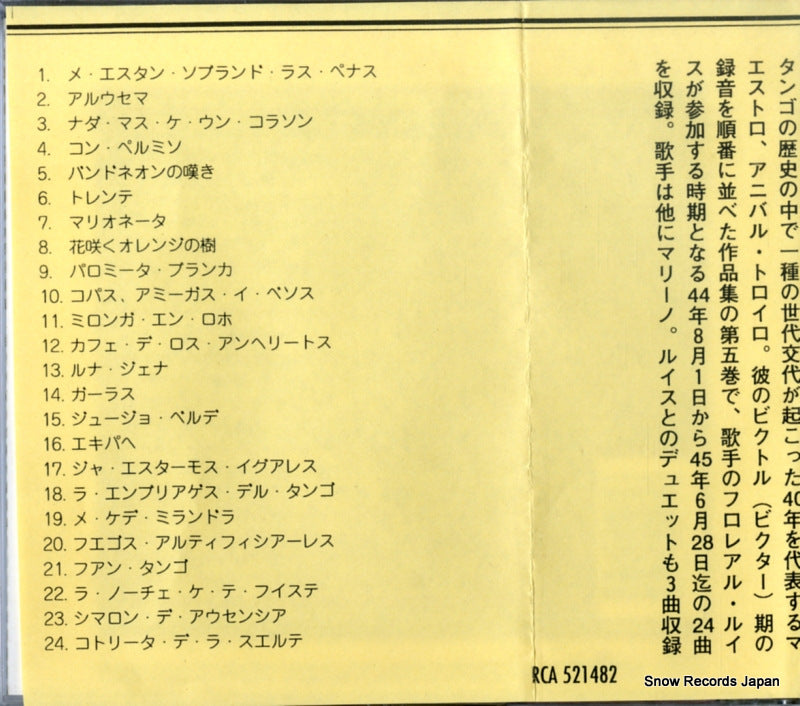 1. メ・エスタン・ソブランド・ラス・ペナス
2. アルウセマ
3. ナダ・マス・ケ・ウン・コラソン
4. コン・ペルミソ
5. バンドネオンの嘆き
6. トレンテ
7. マリオネータ
8. 花咲くオレンジの樹
9. パロミータ・ブランカ
10. コパス、アミーガス・イ・ベソス
11. ミロンガ・エン・ロホ
12. カフェ・デ・ロス・アンヘリートス
13. ルナ・ジェナ
14. ガーラス
15. ジュージョ・ベルデ
16. エキパヘ
17. ジャ・エスターモス・イグアレス
18. ラ・エンブリアゲス・デル・タンゴ
19. メ・ケデ・ミランドラ
20. フエゴス・アルティフィシアーレス
21. フアン・タンゴ
22. ラ・ノーチェ・ケ・テ・フイステ
23. シマロン・デ・アウセンシア
24. コトリータ・デ・ラ・スエルテ
タンゴの歴史の中で一種の世代交代が起こった40年を代表するマ
エストロ、アニバル・トロイロ。彼のビクトル（ビクター）期の
録音を順番に並べた作品集の第五巻で、歌手のフロレアル・ルイ
スが参加する時期となる44年8月1日から45年6月28日迄の24曲
を収録。歌手は他にマリーノ。ルイスとのデュエットも3曲収録
RCA 521482
Snow Records Japan